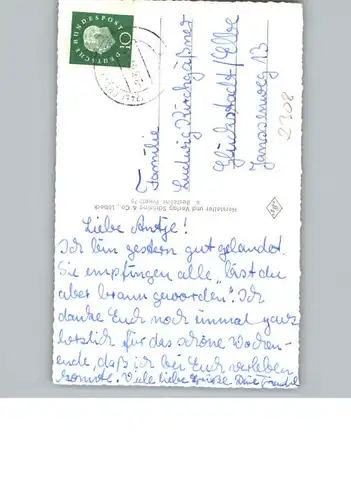 DEUTSCHE BUNDESPOST
10
Familie
Ludwig Kirchgäßner
Glückstadt/Elbe
Janssenweg 13
2308
Hersteller und Verlag Schöning & Co., Lübeck
Liebe Antje!
Ich bin gestern gut gelandet.
Sie empfingen alle „bist du
aber braun geworden". Ich
danke Euch noch einmal ganz
herzlich für das schöne Wochen-
ende, daß ich bei Euch verleben
konnte. Viele liebe Grüße Deine